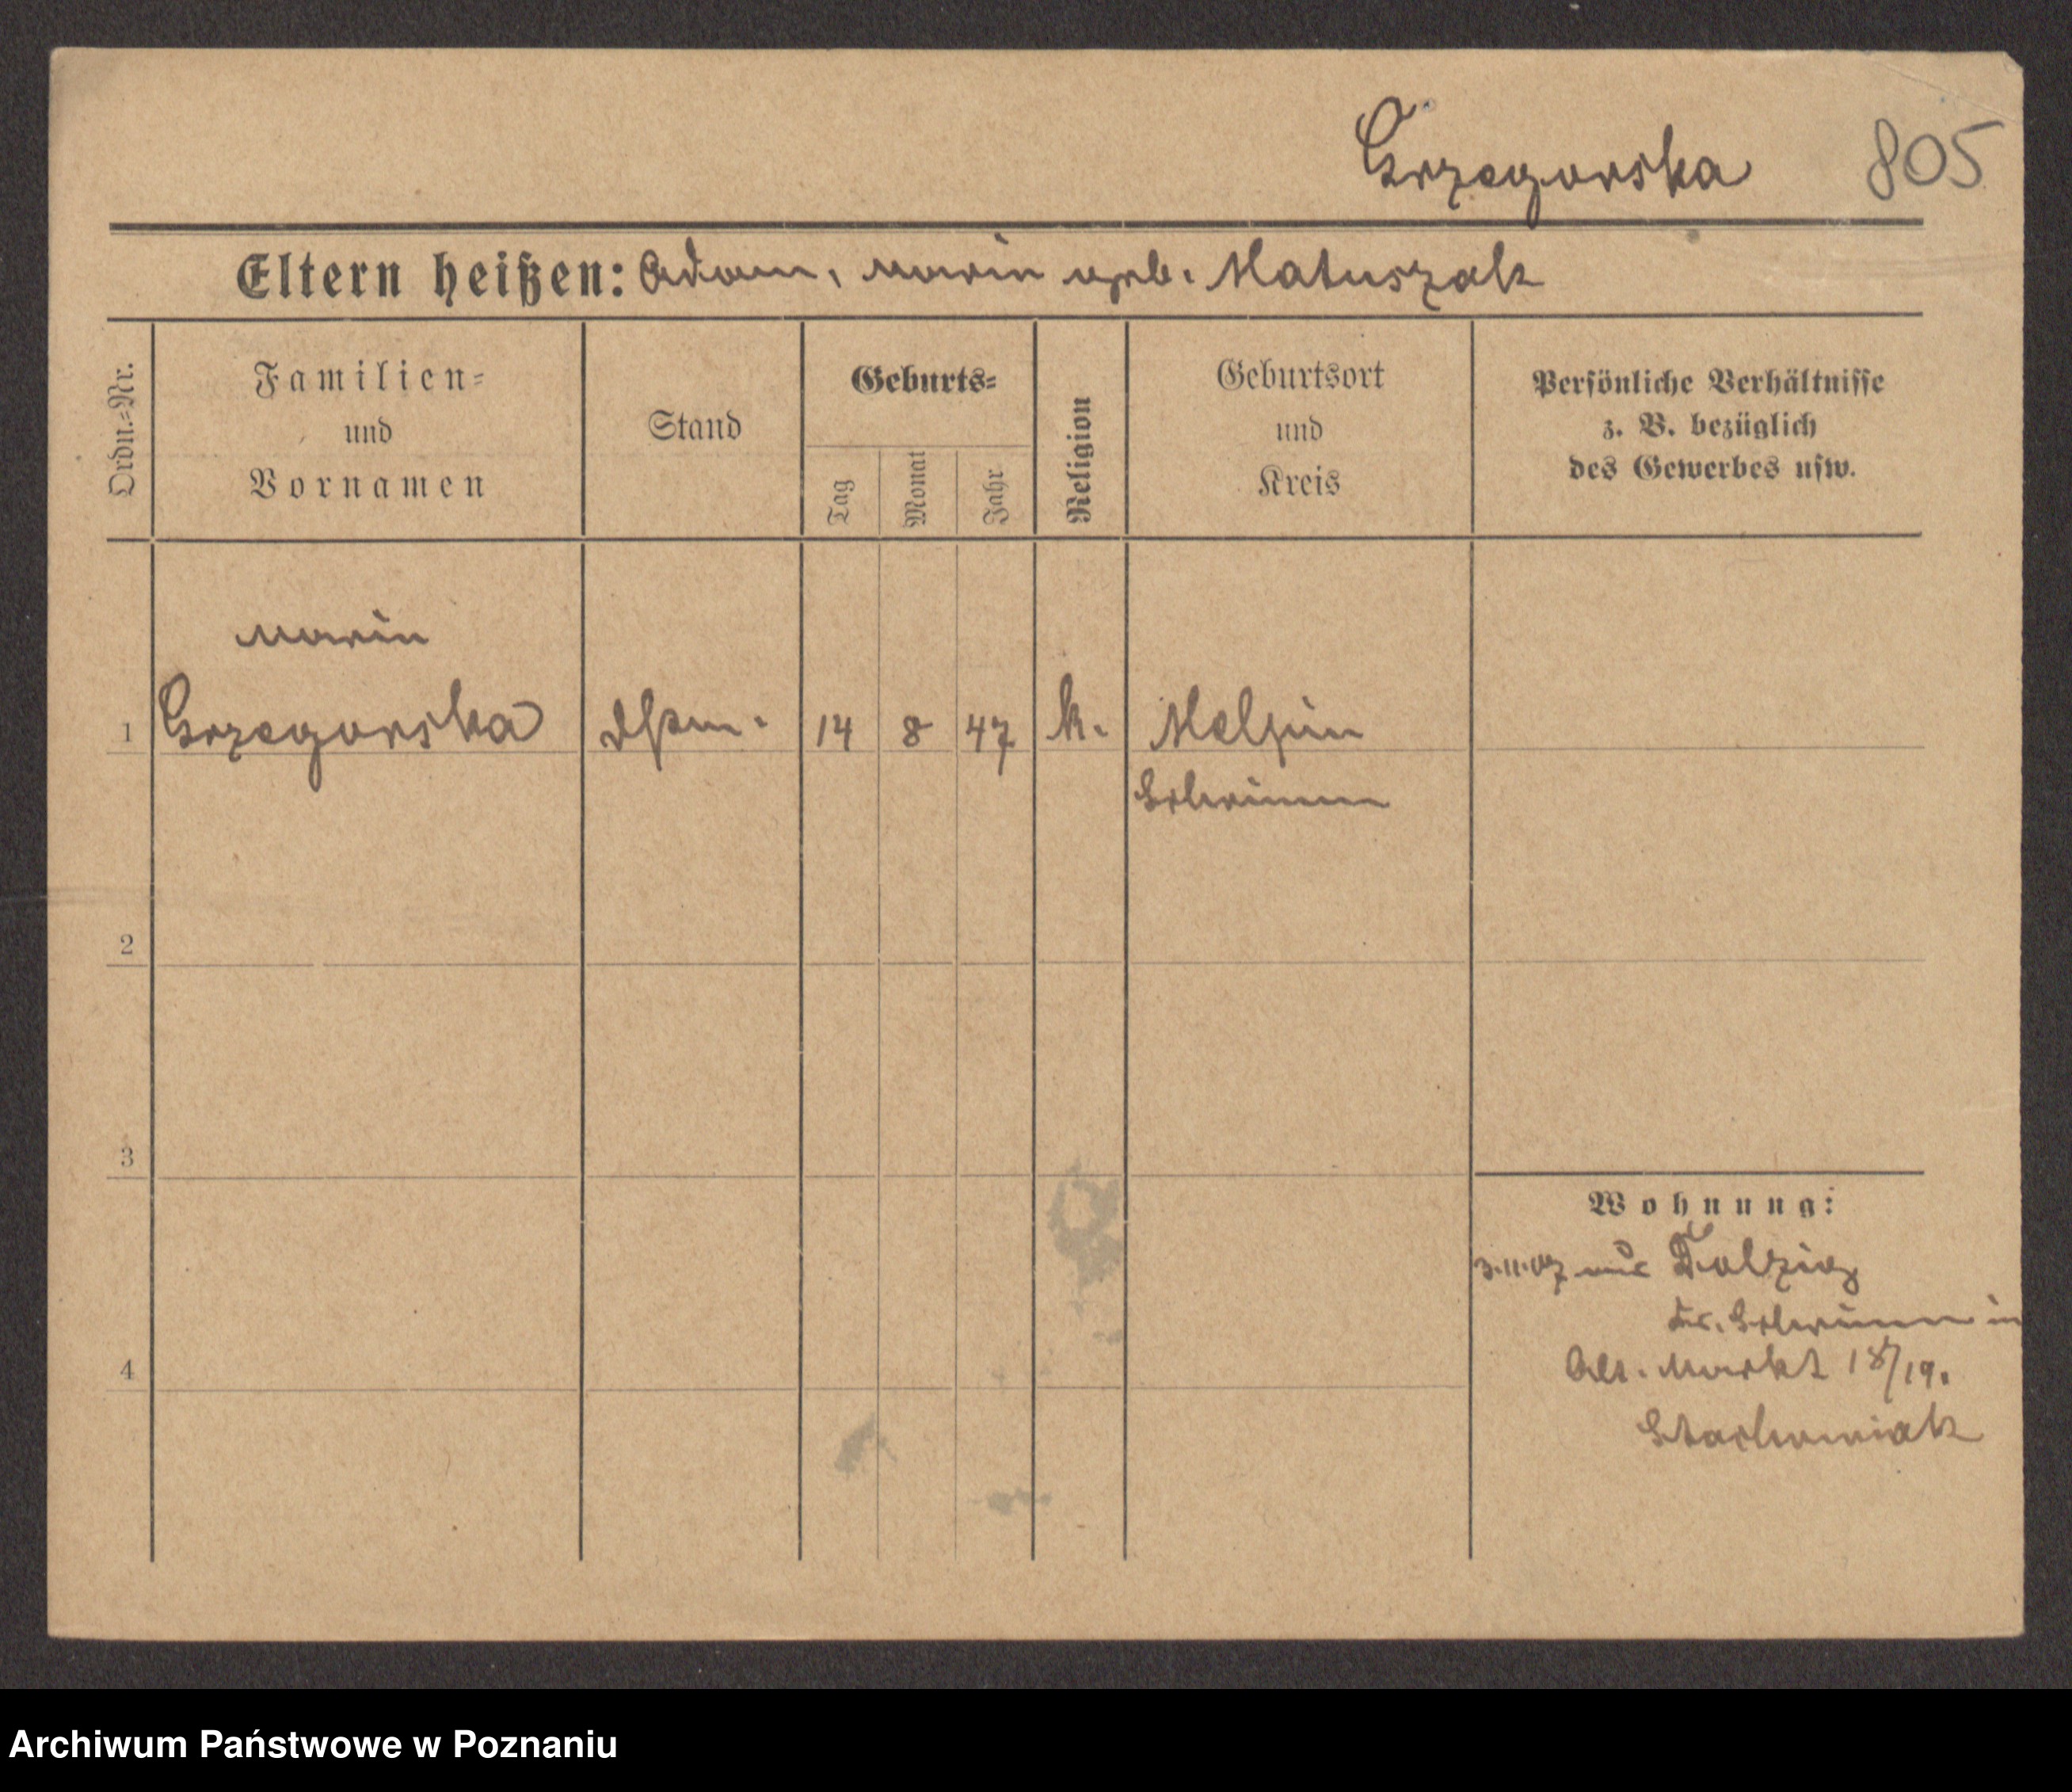 Grzegorska 805
Eltern heißen: Adam, Marie geb. Matuszak
Ordn.=Nr.
Familien=
und
Vornamen
Stand
Geburts=
Tag
Monat
Jahr
Religion
Geburtsort
und
Kreis
Persönliche Verhältnisse
z. B. bezüglich
des Gewerbes usw.
Marie
1 Grzegorska 14 8 47 k. Melpin
Schrimm
2
3
Wohnung:
3.11.07 aus Dolzig
Kr. Schrimm in
4
Alt. Markt 18/19.
Stachowiak
Archiwum Państwowe w Poznaniu